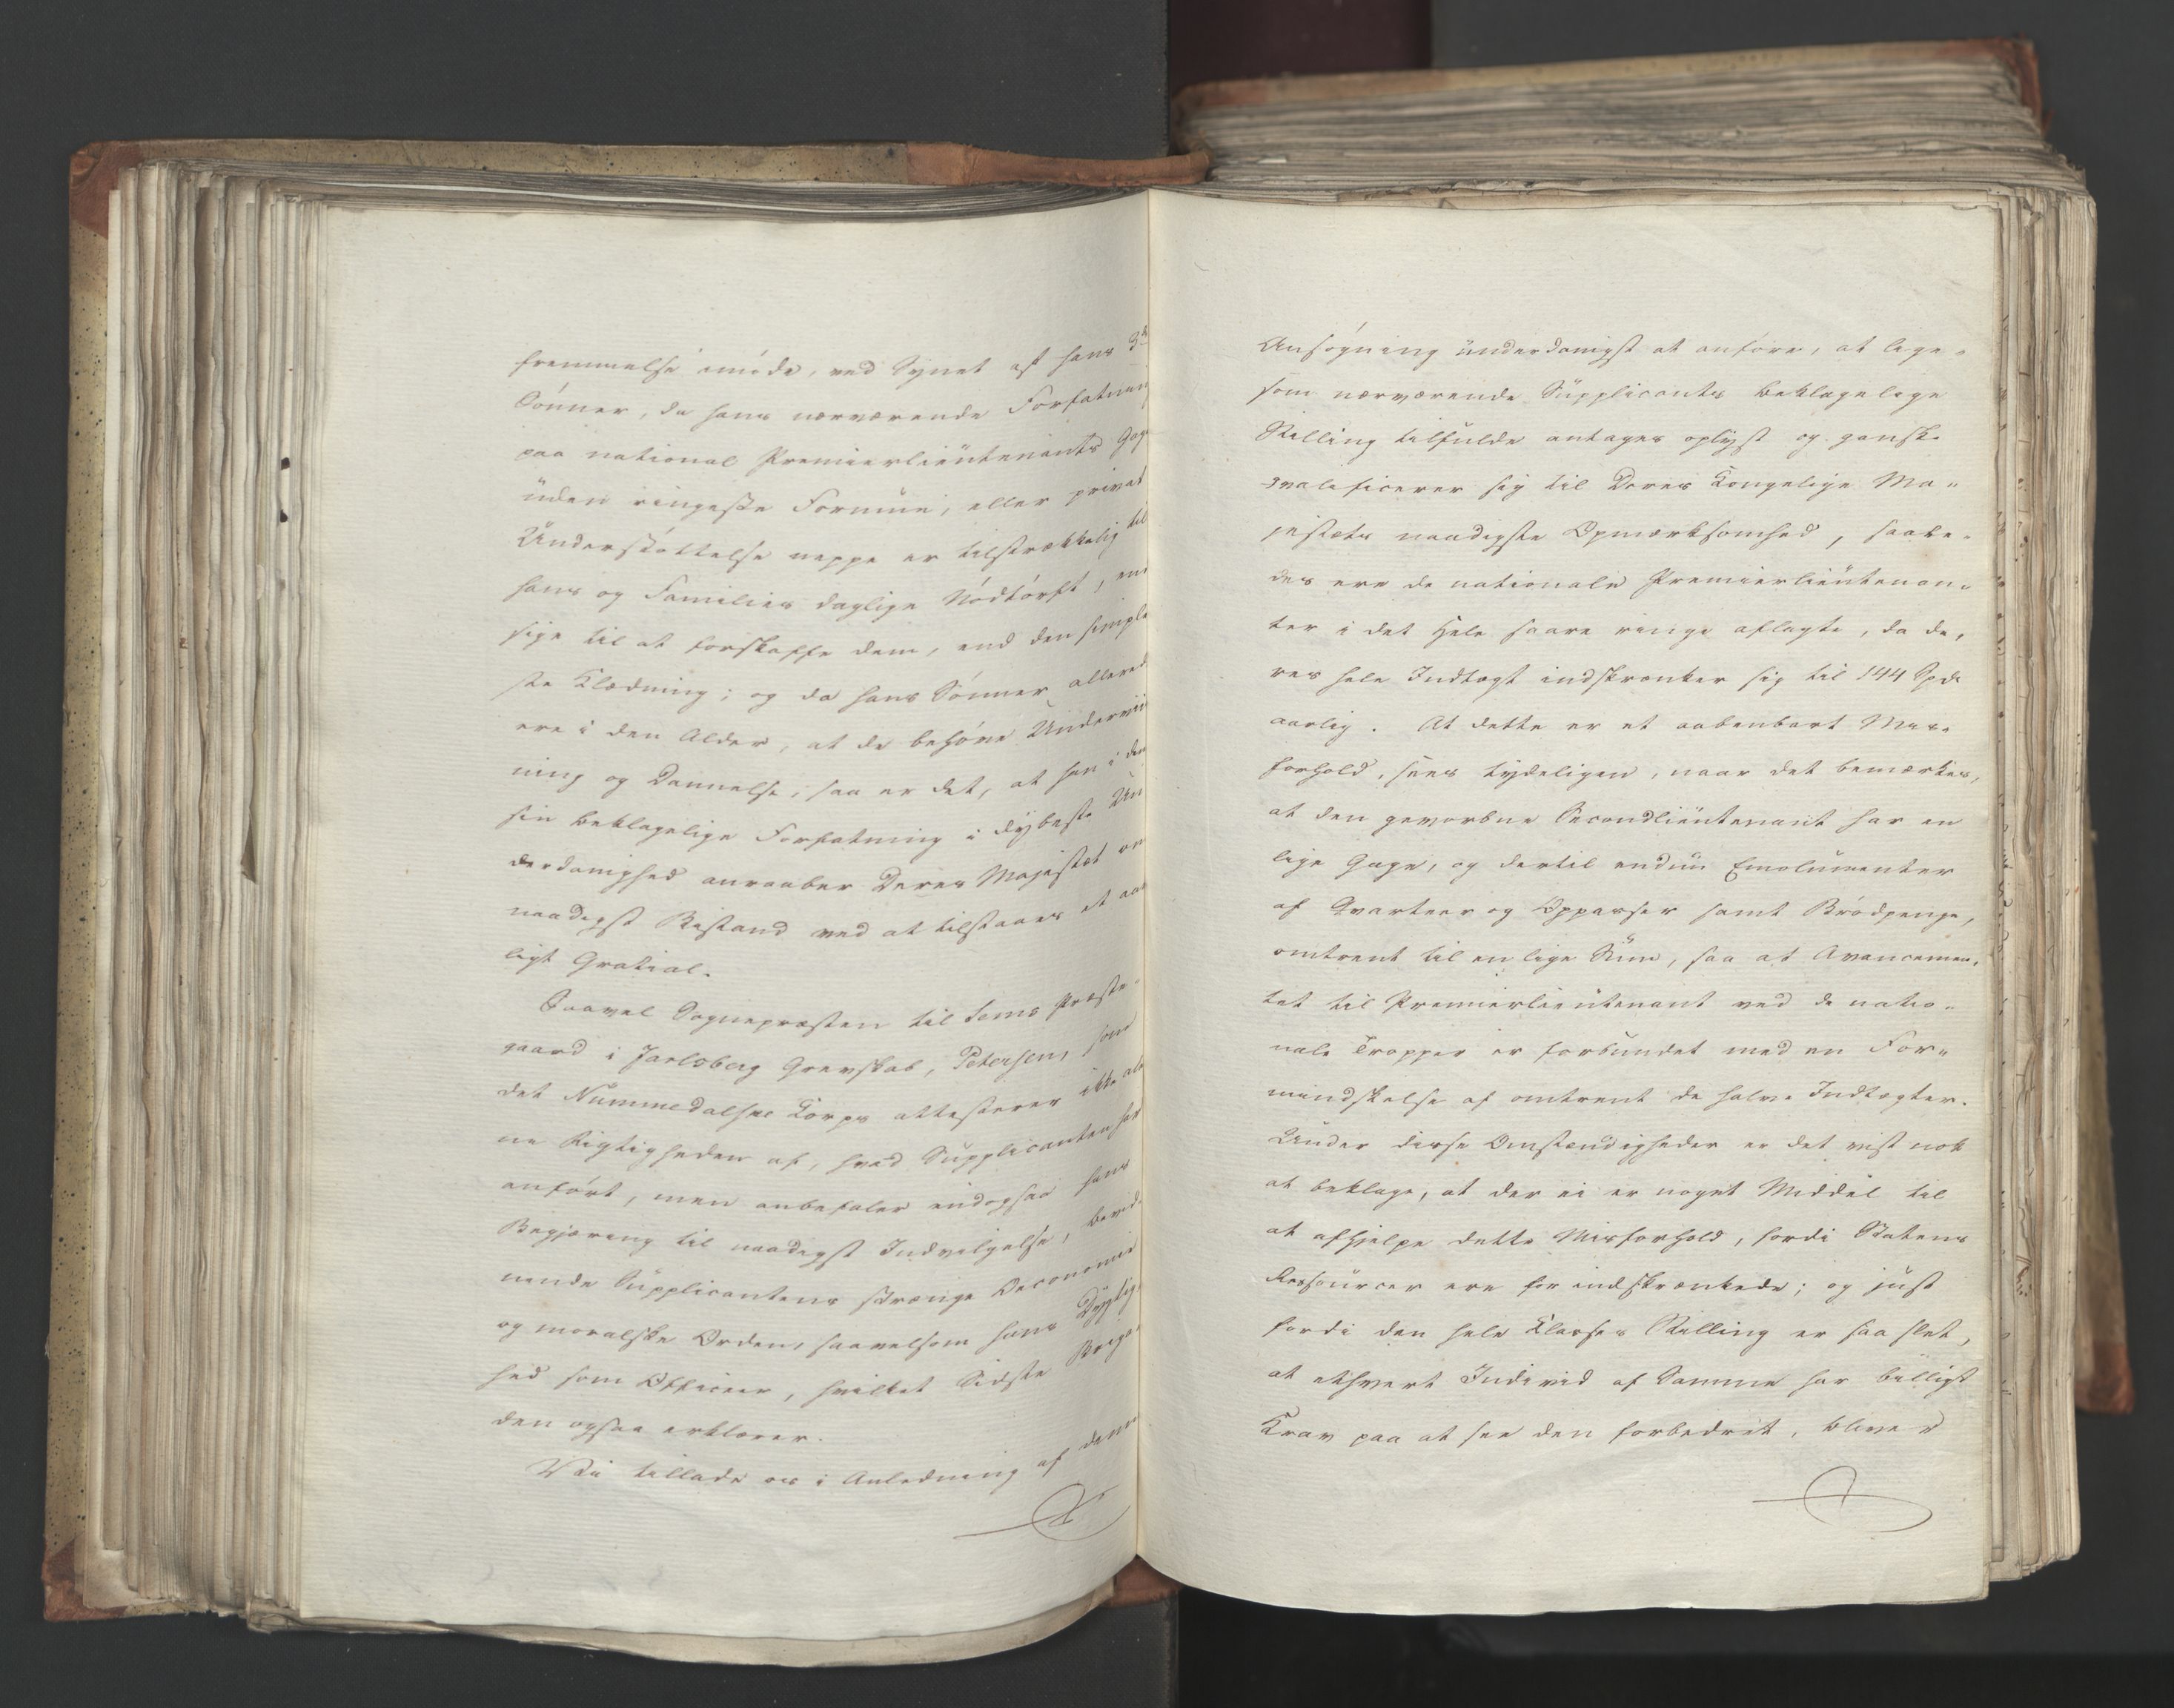 fremmelse imøde, ved Synet af hans 3de
Sønner, da hans nærværende Forfatning
paa national Premierlieutenants Gage
uden ringeste Formue, eller privat
Understøttelse neppe er tilstrækkelig til
hans og Families daglige Nødtørft, end
sige til at forskaffe dem, end den simple
ste Klædning; og da hans Sønner allered
ere i den Alder, at de behøve Underviis
ning og Dannelse, saa er det, at han i den
sin beklagelige Forfatning i dybeste Un
derdanighed anraaber Deres Majestæt om
naadigst Bistand ved at tilstaaes et aar
ligt Gratial.
Saavel Sognepræsten til Sems Præste-
gaard i Jarlsberg Grevskab, Petersen, som
det Nummedalske Korps attesterer ikke ale
ne Rigtigheden af, hvad Supplicanten har
anført, men anbefaler endogsaa hans
Begjæring til naadigst Indvilgelse, bevid-
nende Supplicantens strænge Oeconomie
og moralske Orden, saavelsom hans Dygtig-
hed som Officeer, hvilket Sidste Briga-
den ogsaa erklærer.
Vi tillade os i Anledning af denne
Ansøgning underdanigst at anføre, at lige-
som nærværende Supplicants beklagelige
Stilling tilfulde antages oplyst og ganske
qvalificerer sig til Deres Kongelige Ma-
jestæts naadigste Opmærksomhed, saale-
des ere de nationale Premierlieutenan-
ter i det Hele saare ringe aflagte, da de-
res hele Indtægt indskrænker sig til 144 Spd
aarlig. At dette er et aabenbart Mis-
forhold, sees tydeligen, naar det bemærkes,
at den gevorbne Secondlieutenant har en
lige Gage, og dertil endnu Emolumenter
af Qvarteer og Oppasser samt Brødpenge,
omtrent til en lige Sum, saa at Avancemen-
tet til Premierlieutenant ved de natio-
nale Tropper er forbundet med en For-
mindskelse af omtrent de halve Indtægter.
Under disse Omstændigheder er det vist nok
at beklage, at der ei er noget Middel til
at afhjelpe dette Misforhold, fordi Statens
Ressourcer ere for indskrænkede; og just
fordi den hele Klasses Stilling er saa slet,
at ethvert Individ af Samme har billigt
Krav paa at see den forbedret, bliver